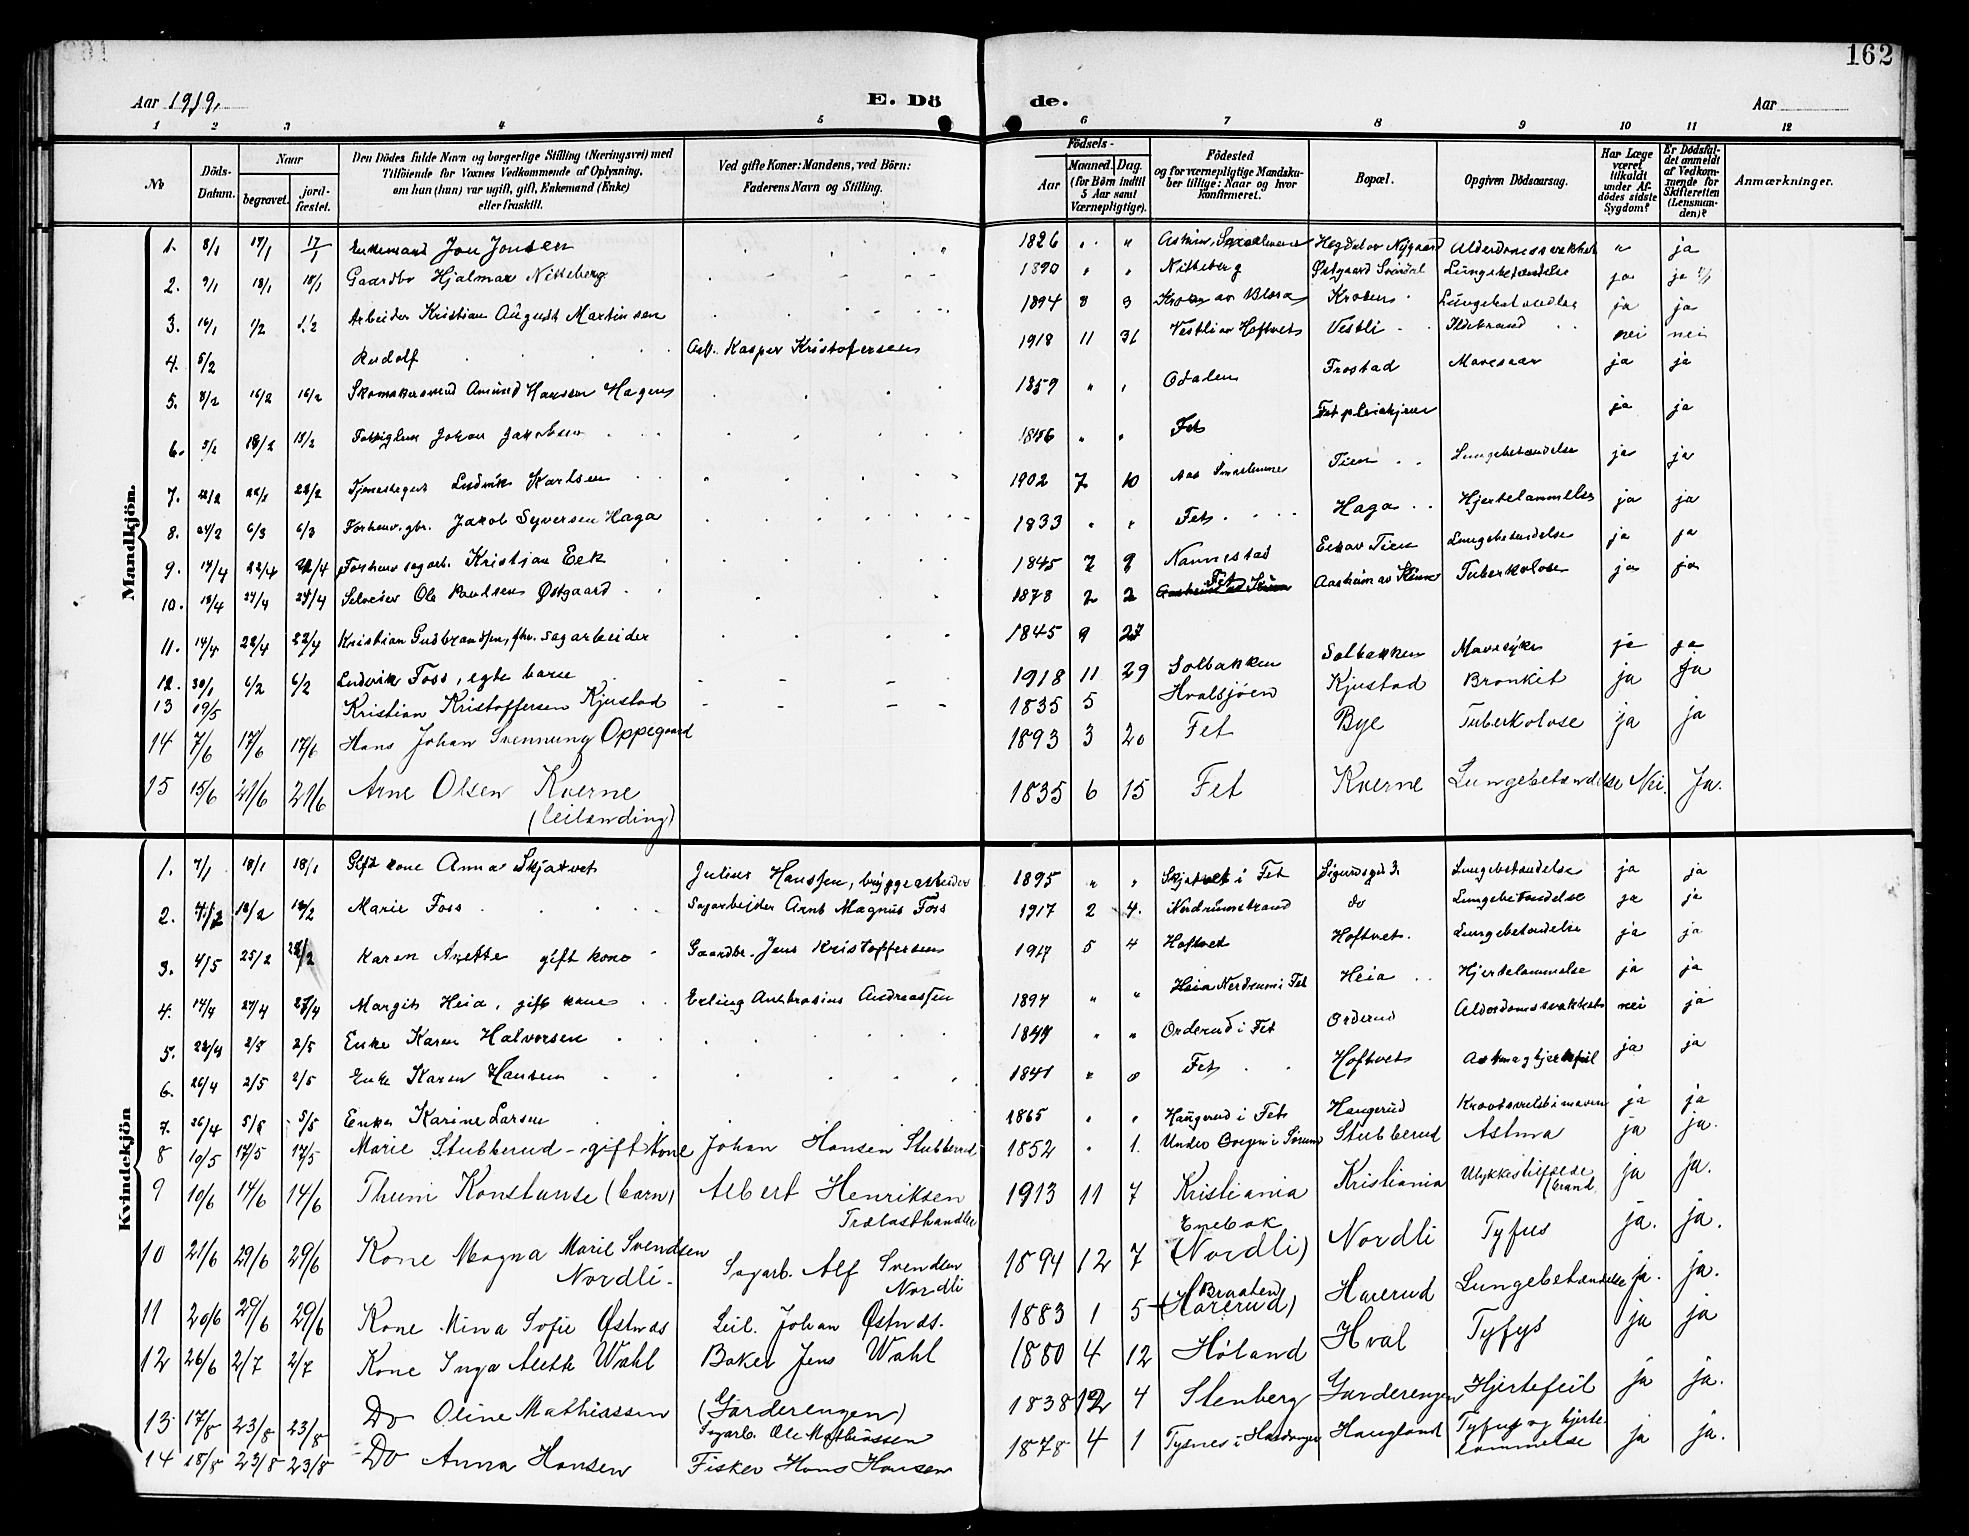 162
Aar 1919.
E. Dö de.
Aar
1 2 3 4 5 6 7 8 9 10 11 12
No
Döds-Datum.
Naar
begravet.
jord-fæstet.
Den Dödes fulde Navn og borgerlige Stilling (Næringsvei) med
Tilföiende for Voxnes Vedkommende af Oplysning,
om han (hun) var ugift, gift, Enkemand (Enke)
eller fraskilt.
Ved gifte Koner: Mandens, ved Börn:
Faderens Navn og Stilling.
Födsels-
Aar
Maaned. Dag.
(for Börn indtil
5 Aar samt
Værnepligtige).
Födested
og for værnepligtige Mandsku-
ber tillige: Naar og hvor
konfirmeret.
Bopæl.
Opgiven Dödsaarsag.
Har Læge
været
tilkaldt
under Af-
dödes sidste
Sygdom?
Er Dödsfal-
det anmeldt
af Vedkom-
mende for
Skifteretten
(Lensman-
den)?
Anmærkninger.
Mandkjön.
1. 8/1 17/1 17/1 Enkemand Jon Jonsen 1826 " " Askim, Smaalenene Alderdomssvækket " ja
2. 9/1 18/1 18/1 Gaardbr Hjalmar Nitteberg 1890 " " Nitteberg Østgaard Svindal Lungebetændelse ja ja
3. 16/1 1/2 1/2 Arbeider Kristian August Martinsen 1894 8 9 Kroken Lungebetændelse ja ja
4. 5/2 Rudolf Arb. Kasper Kristofersen 1918 11 31 Vestli av Hoftvet Vestli Ildebrand nei nei
5. 8/2 16/2 16/2 Skomakersvend Amund Hansen Hagen 1859 " " Odalen Frostad Mavesaar ja ja
6. 5/2 18/2 18/2 Johan Jakobsen 1846 " " Fet Fet pleiehjem ja ja
7. 22/2 Ludvik Karlsen 1902 7 10 Aas Smaalenene Tien Lungebetændelse ja ja
8. 24/2 6/3 6/3 Forhenv. gbr. Jakob Syversen Haga 1833 " " Fet Haga Hjertelammelse ja ja
9. 17/4 22/4 22/4 Forhenv sagarb. Kristian Eek 1845 7 9 Nannestad Eek av Tien Lungebetændelse ja ja
10. 18/4 24/4 24/4 Selveier Ole Paulsen Østgaard 1878 2 2 Fet Aasheim av Tuberkolose ja ja
11. 14/4 22/4 22/4 Kristian Gudbrandsen, fhv. sagarbeider 1845 9 27 Solbakken Mavesyke ja ja
12. 30/1 6/2 6/2 Ludvik Foss, egte barn 1918 11 29 Solbakken Kjustad Bronkit ja ja
13 19/5 Kristian Kristoffersen Kjustad 1835 5 Hvalsjøen
14 7/6 17/6 17/6 Hans Johan Svennung Oppegaard 1893 3 20 Fet Bye Tuberkolose ja ja
15 15/6 21/6 21/6 Arne Olsen Kverne 1835 6 15 Fet Kverne Lungebetændelse Nei. Ja.
(leilending)
Kvindekjön
1. 7/1 18/1 18/1 Gift kone Anna Skjatvet Julius Hanssen, bryggearbeider 1895 " " Skjatvet i Fet Lungebetændelse ja ja
2. 18/2 18/2 Marie Foss Sagarbeider Arnt Magnus Foss 1917 2 4. Nordrumstrand do Lungebetændelse ja ja
3. 4/5 25/2 Karen Anette gift kone Gaardbr. Jens Kristoffersen 1917 5 4 Hoftvet Hoftvet. Lungebetændelse ja ja
4. 17/4 27/4 27/4 Margit Heia, gift kone Erling Ambrosius Andreassen 1897 " " Heia Nordrum i Fet Heia Hjertelammelse ja ja
5. 24/4 2/5 2/5 Enke Karen Halvorsen 1849 " " Orderud i Fet Orderud Alderdomssvakket nei ja
6. 26/4 2/5 2/5 Enke Karen Hansen 1841 " " Fet Hoftvet Astma og hjertefeil ja ja
7. 26/4 5/5 5/5 Enke Karine Larsen 1865 " " Haugerud i Fet Haugerud Kræftsvulst i maven ja ja
8 10/5 17/5 17/5 Marie Stubberud - gift kone Johan Hansen Stubberud 1852 " 1. Under i Sørum Stubberud Astma ja ja.
9 10/6 14/6 14/6 Thum Konstanse (barn) Albert Henriksen 1913 11 7 Kristiania Kristiania Ulykkestilfælde ja ja.
Trælasthandler (brand
10 21/6 29/6 29/6 Kone Magna Marie Svendsen Sagarb. Alf Svendsen 1894 12 7 Enebak (Nordli) Nordli Tyfus ja. ja.
Nordli - Nordli
11 20/6 29/6 29/6 Kone Mina Sofie Østnas Leil. Johan Østnas. 1883 1 5 Braaten (Harerud) Harerud Lungebetændelse ja. ja.
12 26/6 2/7 2/7 Kone Inga Alette Wahl Baker Jens Wahl 1880 4 12 Høland Hval Tyfys ja ja
13 17/8 23/8 23/8 Do Oline Mathiassen (Garderengen) 1838 12 4 Stenberg Garderengen Hjertefeil ja ja.
Sagarb. Ole Mathiassen
14 18/8 23/8 23/8 Do Anna Hansen Fisker Hans Hansen 1878 4 1 Tysnes i Hardanger Haugland Tyfus og hjerte- ja ja.
lammelse